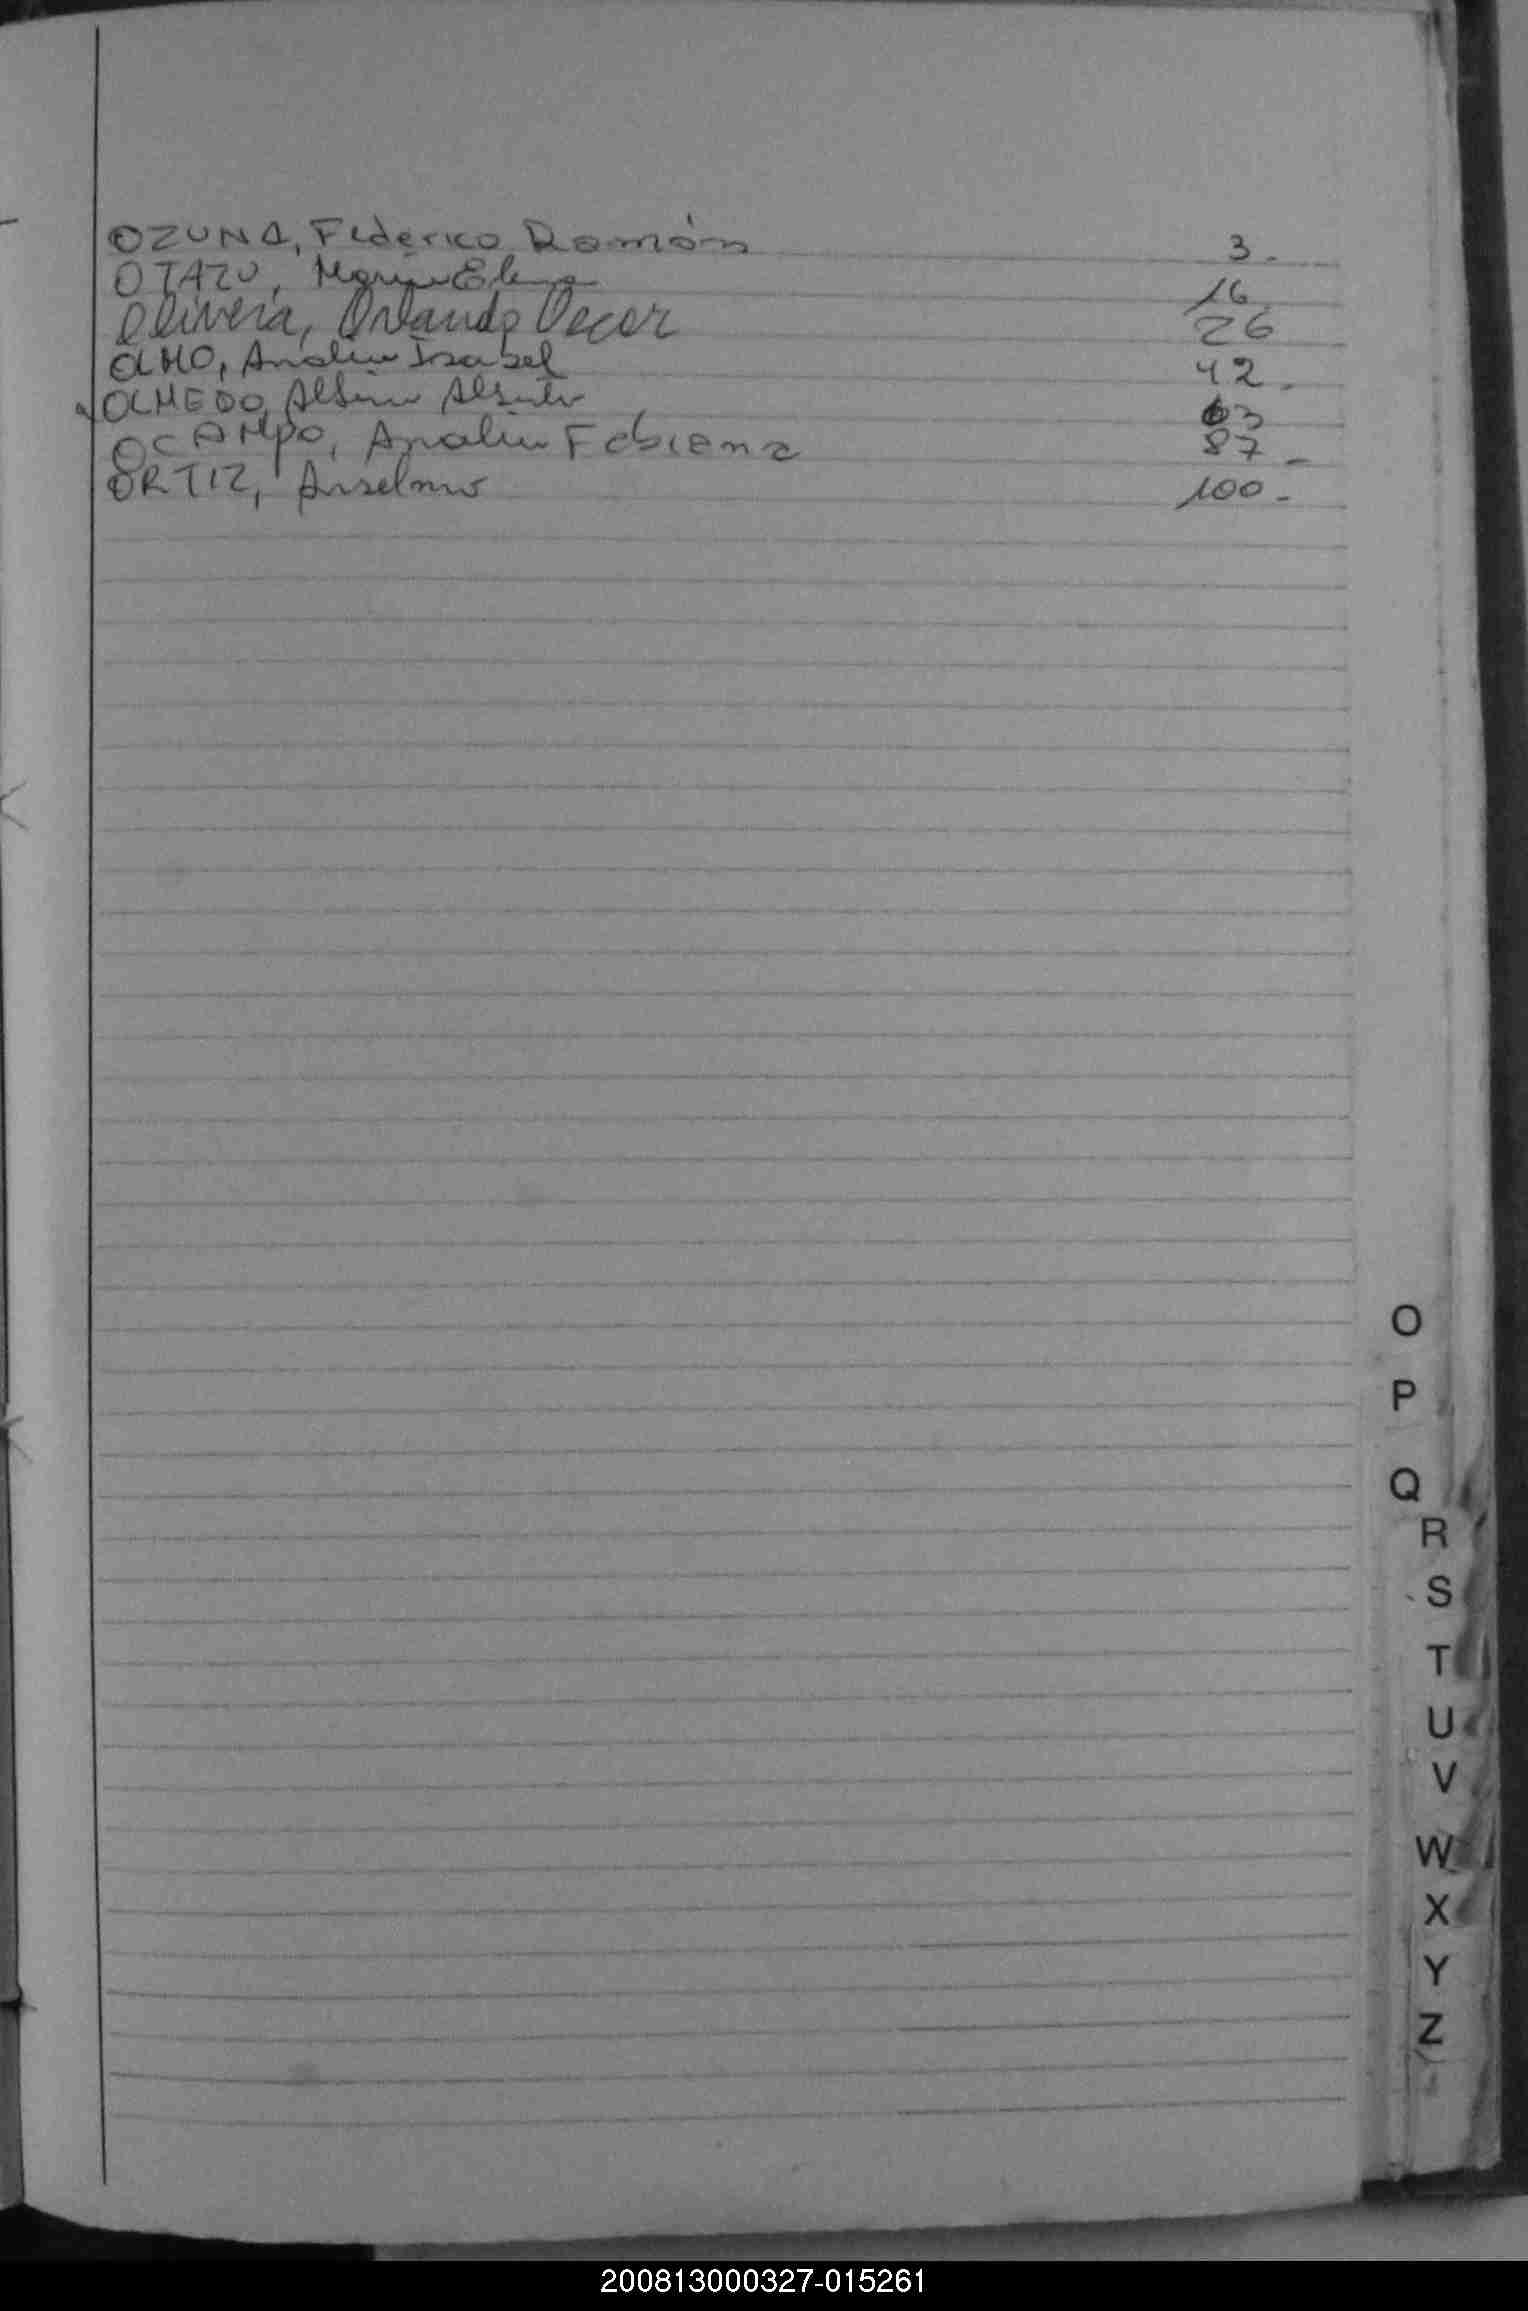 OZUNA, Federico Ramón 3.
OTAZU, María Elena 16
Olivera, Orlando Oscar 26
OLMO, Analia Isabel 42.
OLMEDO, Albino Alberto 63
OCAMPO, Analia Fabiana 87
ORTIZ, Anselmo 100.
O
P
Q
R
S
T
U
V
W
X
Y
Z
200813000327-015261